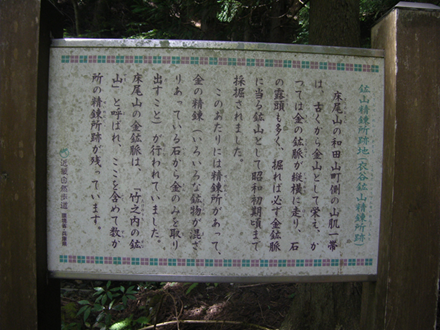 鉱山精錬所跡地（糸谷鉱山精錬所跡）
床尾山の和田山町側の山肌一帯
は、古くから金山として栄え、か
つては金の鉱脈が縦横に走り、石
の露頭も多く、掘れば必ず金鉱脈
に当る鉱山として昭和初期頃まで
採掘されました。
このあたりには精錬所があって、
金の精錬（いろいろな鉱物が混ざ
りあっている石から金のみを取り
出すこと）が行われていました。
床尾山の金鉱脈は、「竹之内の鉱
山」と呼ばれ、ここを含めて数か
所の精錬所跡が残っています。
近畿自然歩道 環境省・兵庫県